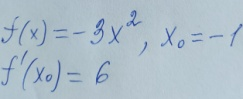 f(x) = -3x², x₀ = -1
f'(x₀) = 6